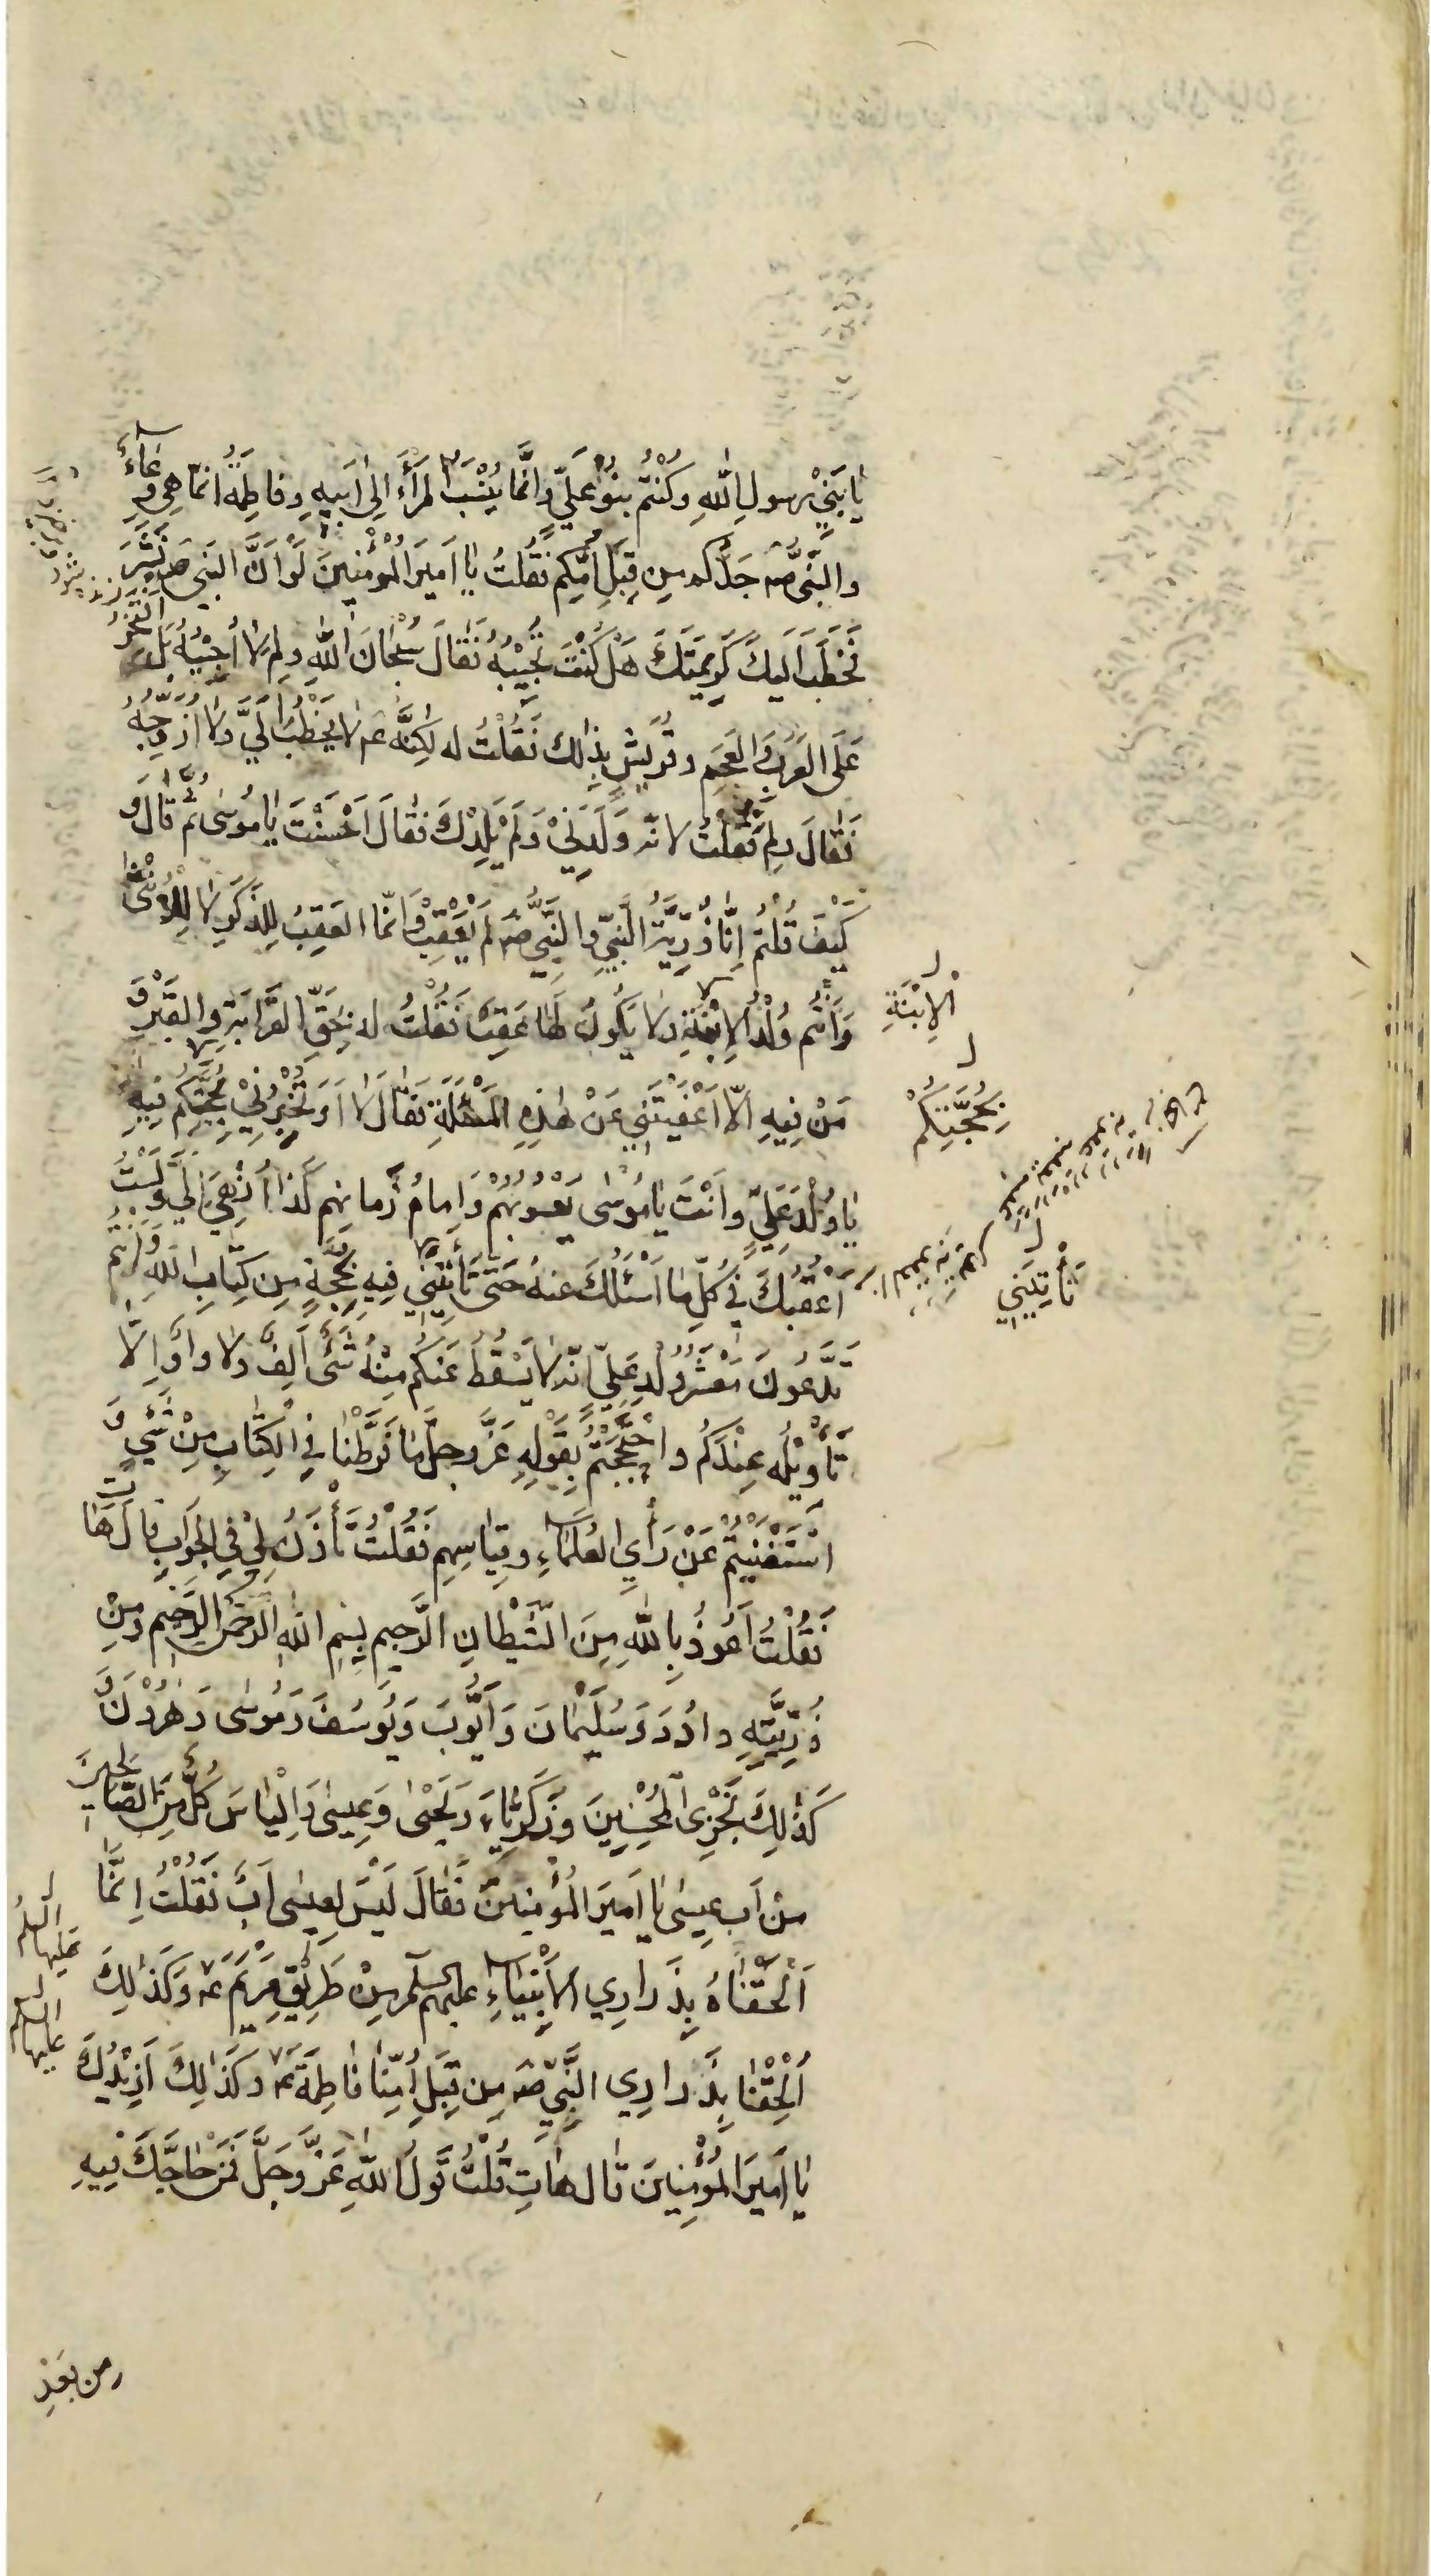 يٰا بَنِيْ رسولِ اللهِ وكُنْتُم بنُوْ عَلِيٍّ وَانَّما يُنْسَبُ المَرْأَءُ اِلى اَبيهِ وفاطِمَةُ انمّا هِيَ وِعٰاءٌ
والنَّبِىُّ صَ جَدُّكم مِن قِبَلِ اُمِّكِم فَقُلتُ يٰا اَميرَ المُؤْمنينَ لَوْ اَنَّ النَبِىَ صَ نُشِرَ
فَخَطَبَ اِلَيكَ كَريمَتَكَ هَل كُنْتَ تُجيْبُهُ فَقالَ سُبْحانَ اللهِ ولِمَ لٰا اُجيْبُهُ بَلْ اَفْتَخِرُ
عَلَى العَرَبِ وَالعَجَمِ وقُرَيشٍ بِذلك فَقُلْتُ له لٰكِنَّه عَ لا يَخْطُبُ اِلَىَّ وَلا اُزَوِّجُهُ
فَقٰالَ ولِمَ فَقُلْتُ لانّه وَلَدَنِيْ وَلَمْ يَلِدْكَ فَقٰالَ اَحْسَنْتَ يٰا مُوسٰى ثُمَّ قٰالَ وَ
كَيْفَ قُلْتُمْ اِنّٰا ذُرِّيَّةُ النَّبِيِّ والنَّبِيُّ صَ لَمْ يُعْقِبْ وَانمّا العَقِبُ لِلذَكَرِ لا لِلاُنْثىٰ
وَاَنْتُم وُلْدُ الاِبْنَةِ ولا يَكُونُ لَها عَقِبٌ فَقُلْتُ له بِحَقِّ القَرٰابَةِ والقَبْرِ وَ
الاِبْنَةِ
مَنْ فِيهِ الّا اَعْفَيْتَنِي عَنْ هٰذِهِ المَسْئَلَةِ فَقٰالَ لٰا اَوَ تُخْبِرُنِيْ بِحُجَّتِكُم فِيْهِ
بِحُجَّتِكُمْ
يٰا وُلْدَ عَلِيٍّ وانْتَ يٰا مُوسٰى يَعْسُوبُهُمْ وَاِمامُ زَمانِهِم كَذٰا اُنْهِيَ اِلَيَّ وَلَسْتُ
اُعْفيكَ فِي كُلِّ مٰا اَسْئَلُكَ عنهُ حَتّٰى تَأْتِيَنِي فِيهِ بِحُجَّةٍ مِن كِتٰابِ اللهِ وَاَنْتُم
تَأْتِيَنِي
تَدَّعُونَ مَعْشَرَ وُلْدِ عَلِيٍّ انّه لا يَسْقُطُ عَنكُم مِنْهُ شَىْءٌ اَلِفٌ وَلا وٰاوٌ اِلّٰا
تَأْوِيْلُه عِنْدَكُم واحْتَجَجْتُمْ بِقَوْلِهِ عَزَّ وجلَّ مٰا فَرَّطْنٰا فِي الْكِتٰابِ مِنْ شَيْءٍ وَ
اسْتَغْنَيْتُمْ عَنْ رَأْيِ العُلَمٰاءِ وقِيٰاسِهِم فَقُلْتُ تَأْذَنُ لِيْ فِي الجَوابِ قالَ هٰاتِ
فَقُلْتُ اَعُوذُ بِاللهِ مِنَ الشَّيْطانِ الرَّجيمِ بِسْمِ اللهِ الرَّحْمنِ الرَّحيمِ وَمِنْ
ذُرِّيَّتِهِ داوُدَ وَسُلَيْمٰانَ وَاَيُّوبَ وَيُوسُفَ وَمُوسٰى وَهٰرُوْنَ وَ
كَذٰلِكَ نَجْزِى الْمُحْسِنِينَ وَزَكَرِيّٰاءَ وَيَحْيٰى وَعِيسٰى وَاِلْيٰاسَ كُلٌّ مِنَ الصّٰالِحينَ
مَنْ اَب عِيسٰى يٰا اَميرَ المُؤْمِنينَ فَقٰالَ لَيْسَ لِعِيسٰى اَبٌ فَقُلْتُ اِنَّمٰا
اَلْحَقْنٰاهُ بِذَرارِي الاَنْبِيٰاءِ عليهم السلم مِنْ طَرِيْقِ مَرْيَمَ عَ وَكَذٰلِكَ
عَلَيها السلمُ
اُلْحِقْنٰا بِذَرارِي النَّبِيِّ صَ مِن قِبَلِ اُمِّنٰا فٰاطِمَةَ عَ وكَذٰلِكَ اَزِيْدُكَ
عليها السلم
يٰا اَميرَ المُؤْمِنينَ قٰال هٰاتِ قُلْتُ قَولُ اللهِ عَزَّ وَجَلَّ فَمَنْ حٰاجَّكَ فِيهِ
من بَعْدِ